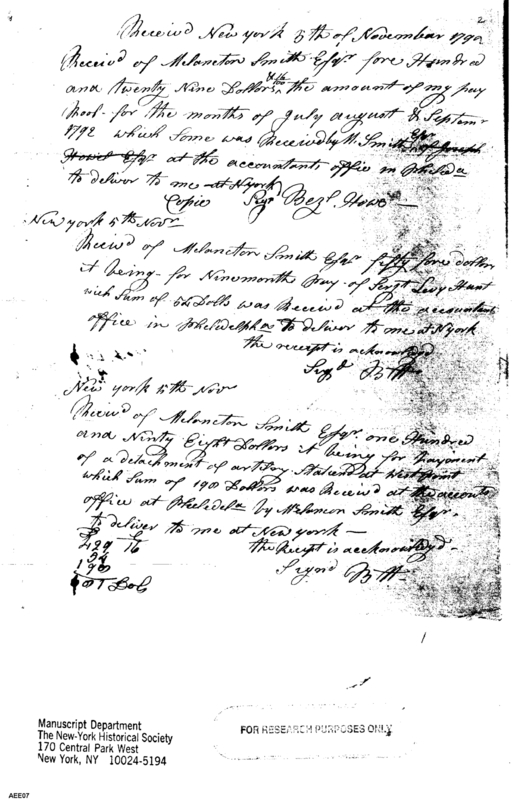 2
Receivd New york 5th of November 1792
Receivd of Melancton Smith Esqr fore Hundred
and twenty Nine Dollors 16/100 the amount of my pay
Rool for the months of July august & Septemr
1792 which Some was Received by M. Smith Esqr of Joseph
Howel Esqr at the accountants offic in Pheleda
to deliver to me at N york
Copie Sigd Bezl Howe
New york 5th Novr
Receivd of Melancton Smith Esqr fifty fore dollors
it being for Nine month pay of Sergt Levy Hunt
wich Sum of 54 Dolls was Receivd at the accountants
office in Pheledelpha to deliver to me at N york
the receipt is acknowlegd
Sigd BH
New york 5th Novr
Receivd of Melancton Smith Esqr one Hundred
and Ninty Eight Dollors it being for payment
of a detachment of artilory Stationd at West Point
which Sum of 198 Dollors was Receivd at the accounts
office at Pheledela by Melancon Smith Esqr.
to deliver to me at New york
the Receipt is acknowlegd
429 16
54
198
Dols
Signd BH
Manuscript Department
The New-York Historical Society
170 Central Park West
New York, NY 10024-5194
FOR RESEARCH PURPOSES ONLY
AEE07